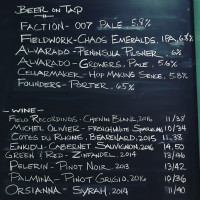 BEER ON TAP
FACTION - 007 PALE 5.9%
FIELDWORK - CHAOS EMERALDS, IPA, 6.8%
ALVARADO - PENINSULA PILSNER,
ALVARADO - GROWERS, PALE, 5.6%
CELLARMAKER - HOP MAKING SENCE, 5.8%
FOUNDERS - PORTER, 6.5%
- WINE -
FIELD RECORDINGS - CHENIN BLANC, 2016 11/38
MICHEL OLIVIER - FRENCH WHITE SPARKLING 10/34
COTES DU RHONE, BEABENARD, 2015 11/38
ENKIDU - CABERNET SAUVIGNON, 2016 14,50
GREEN & RED - ZINFANDEL, 2014 13/46
PELERIN - PINOT NOIR, 2013 13/42
PALMINA - PINOT GRIGIO, 2016 10/36
ORSIANNA - SYRAH, 2014 11/40